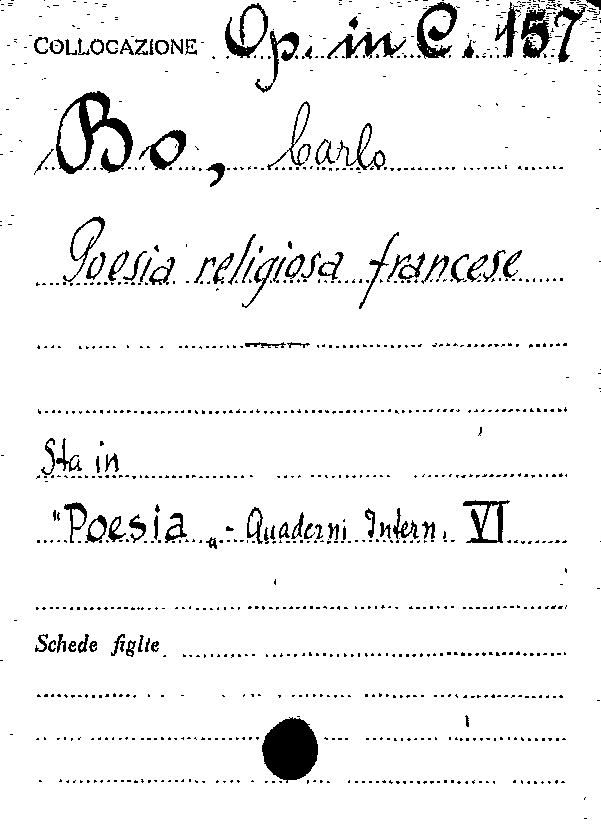 COLLOCAZIONE Op. in C. 157
Bo, Carlo
Poesia religiosa francese
Sta in
"Poesia„ - Quaderni Intern. VI
Schede figlie